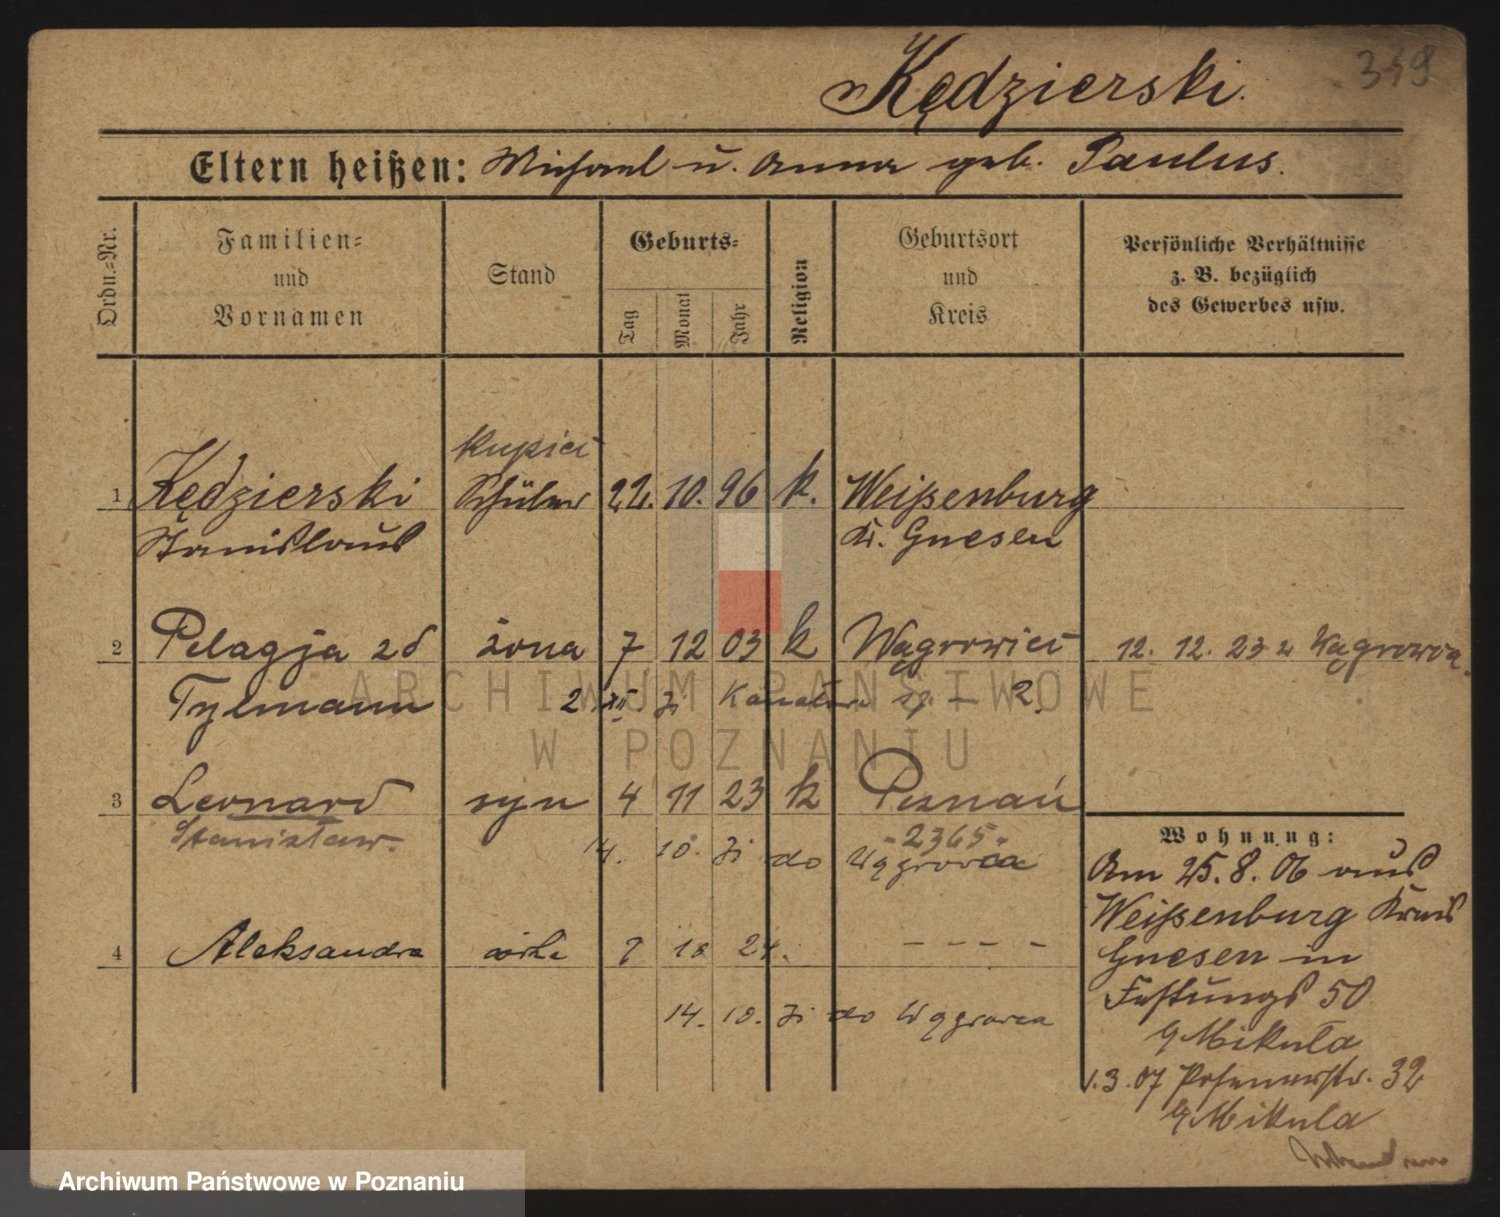 Kędzierski.
359
Eltern heißen: Michael u. Anna geb. Paulus.
Ordn.-Nr.
Familien- und Vornamen
Stand
Geburts-
Tag
Monat
Jahr
Religion
Geburtsort und Kreis
Persönliche Verhältnisse
z. B. bezüglich
des Gewerbes usw.
kupiec
1 Kędzierski Schüler 22. 10. 96 k. Weißenburg
Stanislaus Kr. Gnesen
2 Pelagja zd żona 7 12 03 k Wągrowiec 12. 12. 23 z Wągrowca
Tylmann 2 XII Kanałowa 17 – 2.
3 Leonard syn 4 11 23 k Poznań
Stanisław - 2365 -
14. 10. do Wągrowca
4 Aleksandra córka 9 10 24. - - - -
14. 10. do Wągrowca
Wohnung:
Am 25. 8. 06 aus
Weißenburg Kreis
Gnesen in
Festungs 50
b/ Mikuła
1. 3. 07 Posenerstr. 32
b/ Mikula
ARCHIWUM PAŃSTWOWE
W POZNANIU
Archiwum Państwowe w Poznaniu